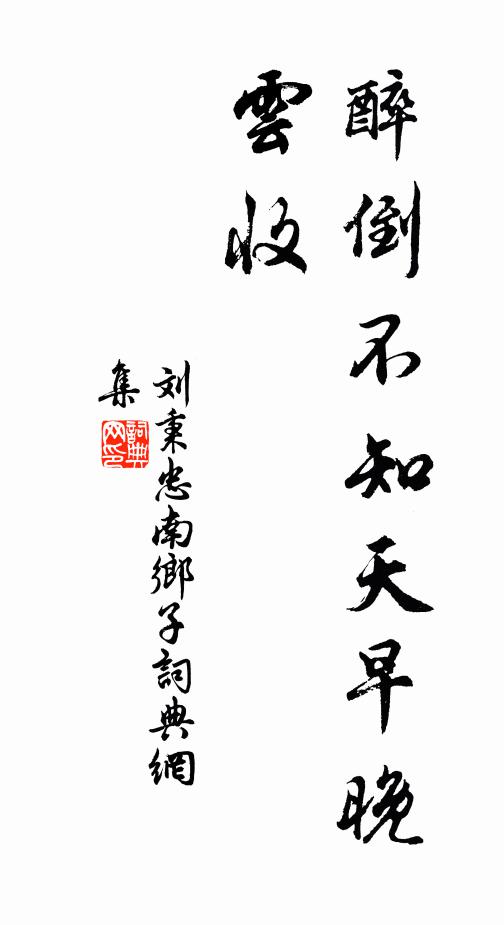 醉倒不知天早晚
雲收
刘秉忠南鄉子詞典網
集
詞典
网印